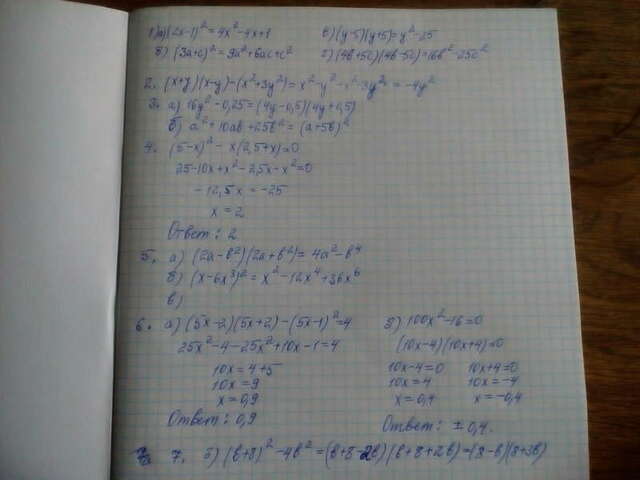 1) а) (2x-1)² = 4x²-4x+1 в) (y-5)(y+5)=y²-25
б) (3a+c)² = 9a²+6ac+c² г) (4b+5c)(4b-5c)=16b²-25c²
2. (x+y)(x-y)-(x²+3y²)=x²-y²-x²-3y²=-4y²
3. а) 16y²-0,25=(4y-0,5)(4y+0,5)
б) a²+10ab+25b²=(a+5b)²
4. (5-x)²-x(2,5+x)=0
25-10x+x²-2,5x-x²=0
-12,5x=-25
x=2
Ответ: 2
5. а) (2a-b²)(2a+b²)=4a²-b⁴
б) (x-6x³)²=x²-12x⁴+36x⁶
в)
6. а) (5x-2)(5x+2)-(5x-1)²=4
25x²-4-25x²+10x-1=4
10x=4+5
10x=9
x=0,9
Ответ: 0,9
б) 100x²-16=0
(10x-4)(10x+4)=0
10x-4=0 10x+4=0
10x=4 10x=-4
x=0,4 x=-0,4
Ответ: ±0,4.
7. б) (b+8)²-4b²=(b+8-2b)(b+8+2b)=(8-b)(8+3b)